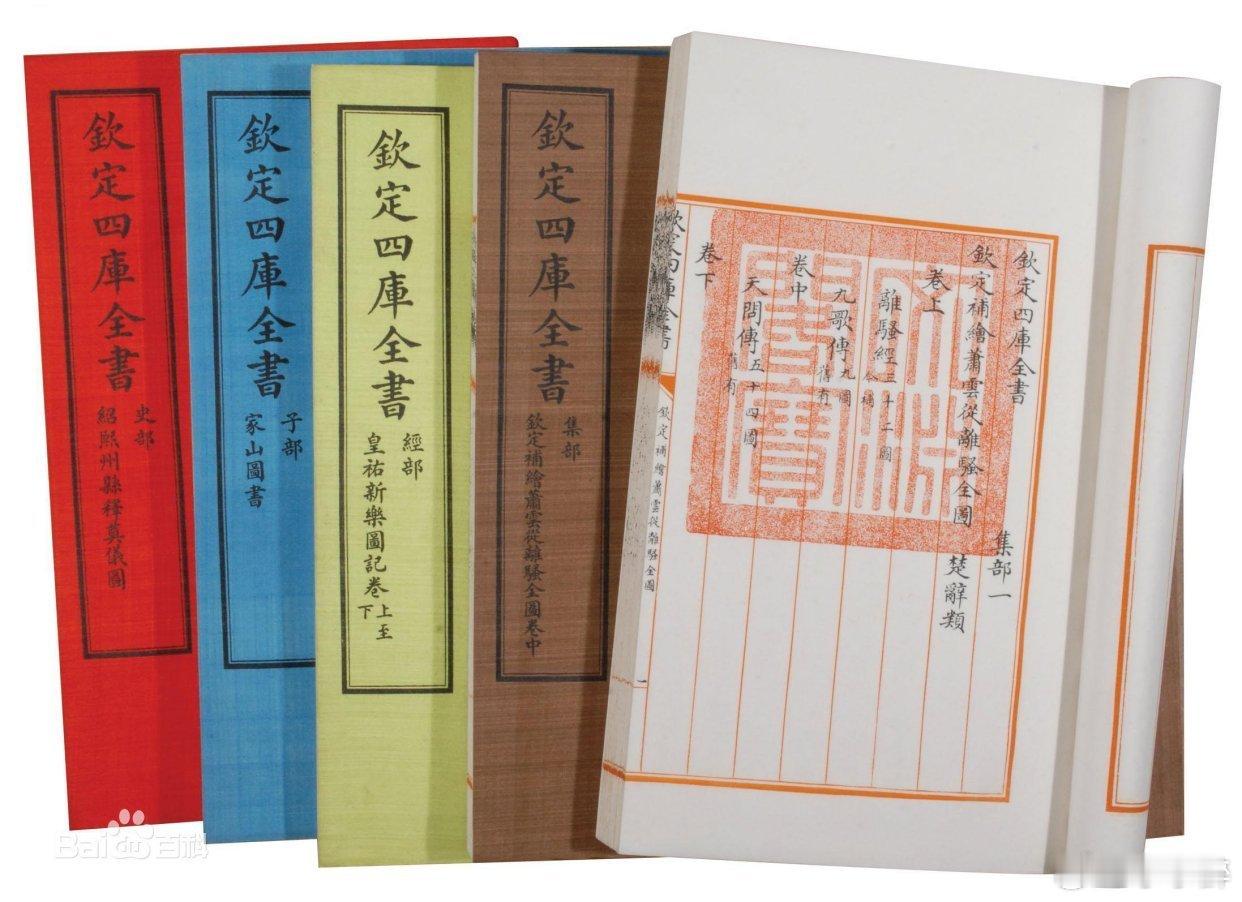 欽定四庫全書
史部
紹熙州縣釋奠儀圖
欽定四庫全書
子部
家山圖書
欽定四庫全書
經部
皇祐新樂圖記卷上至下
欽定四庫全書
集部
欽定補繪蕭雲從離騷全圖卷中
欽定四庫全書 集部一
欽定補繪蕭雲從離騷全圖 楚辭類
卷上
離騷經三十二圖 今補
九歌傳九圖 舊有
卷中
天問傳五十四圖 舊有
卷下
欽定四庫全書
欽定補繪蕭雲從離騷全圖
一
Bai百科